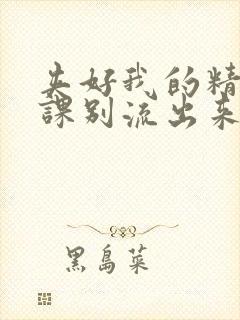 夹好我的精
課别流出来
黑島菜